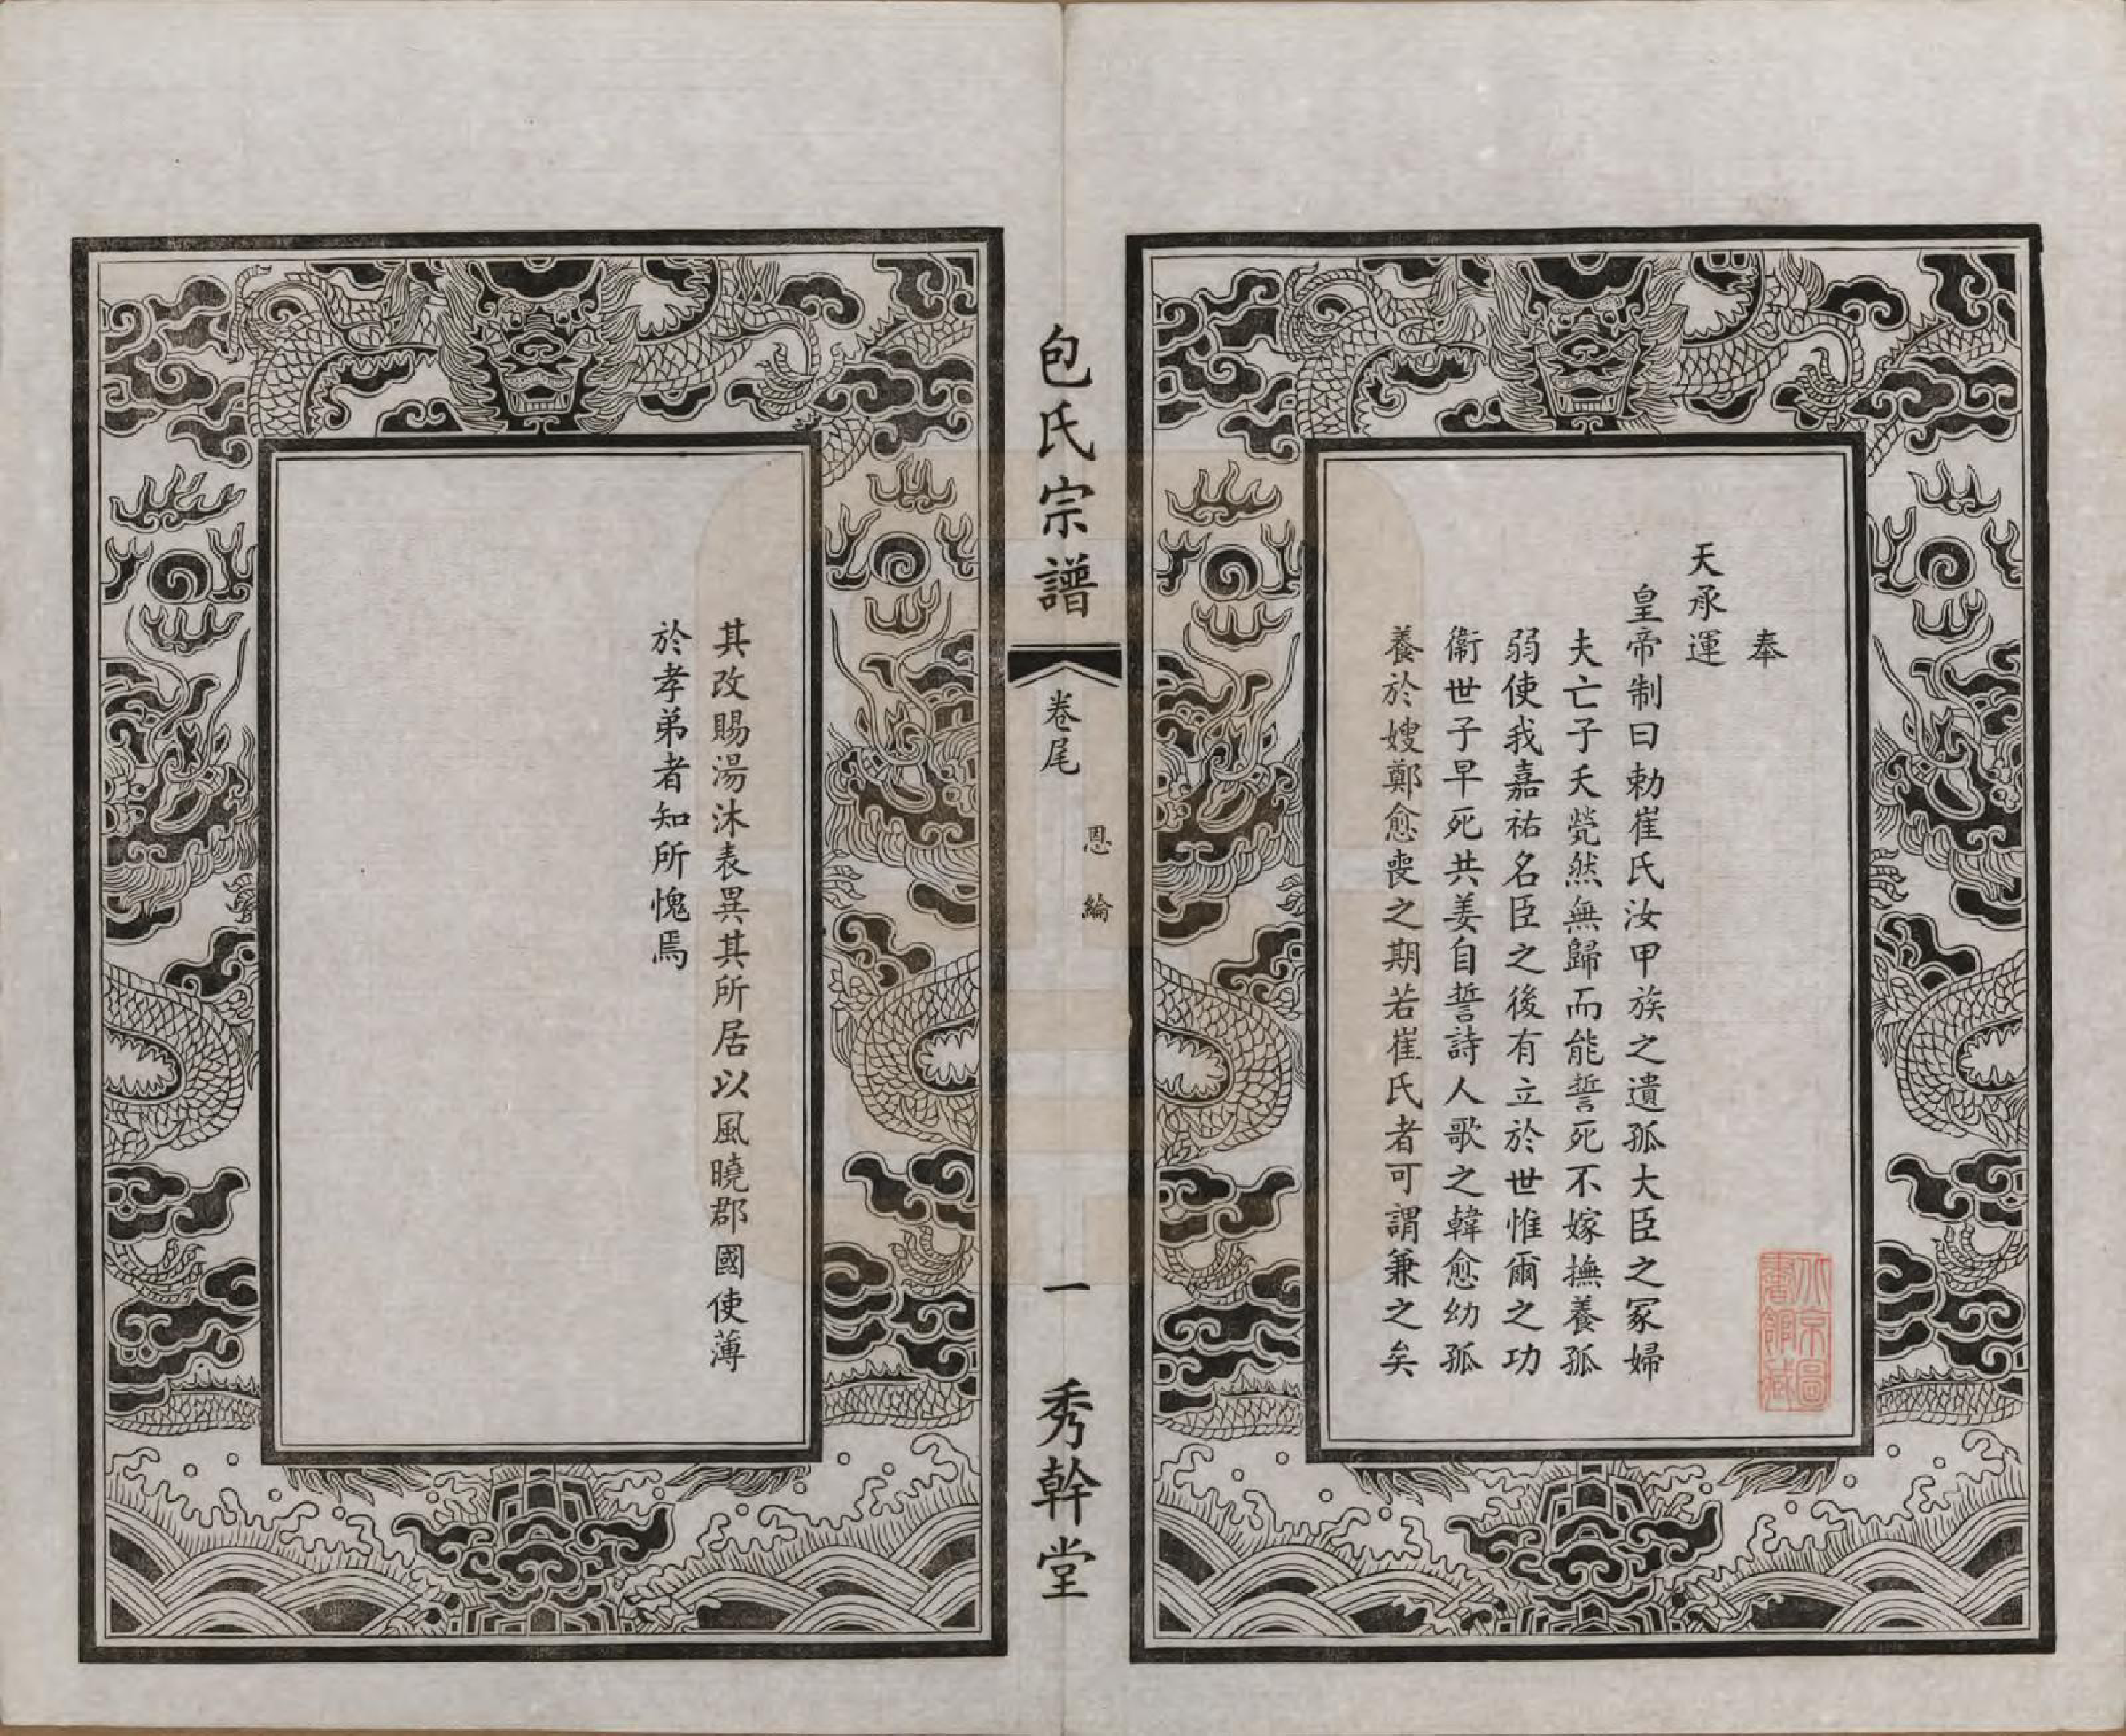 奉
天承運
皇帝制曰勅崔氏汝甲族之遺孤大臣之冢婦
夫亡子夭煢然無歸而能誓死不嫁撫養孤
弱使我嘉祐名臣之後有立於世惟爾之功
衞世子早死共姜自誓詩人歌之韓愈幼孤
養於嫂鄭愈喪之期若崔氏者可謂兼之矣
包氏宗譜
卷尾
恩綸
一
秀幹堂
其改賜湯沐表異其所居以風曉郡國使薄
於孝弟者知所愧焉
北京圖
書館藏